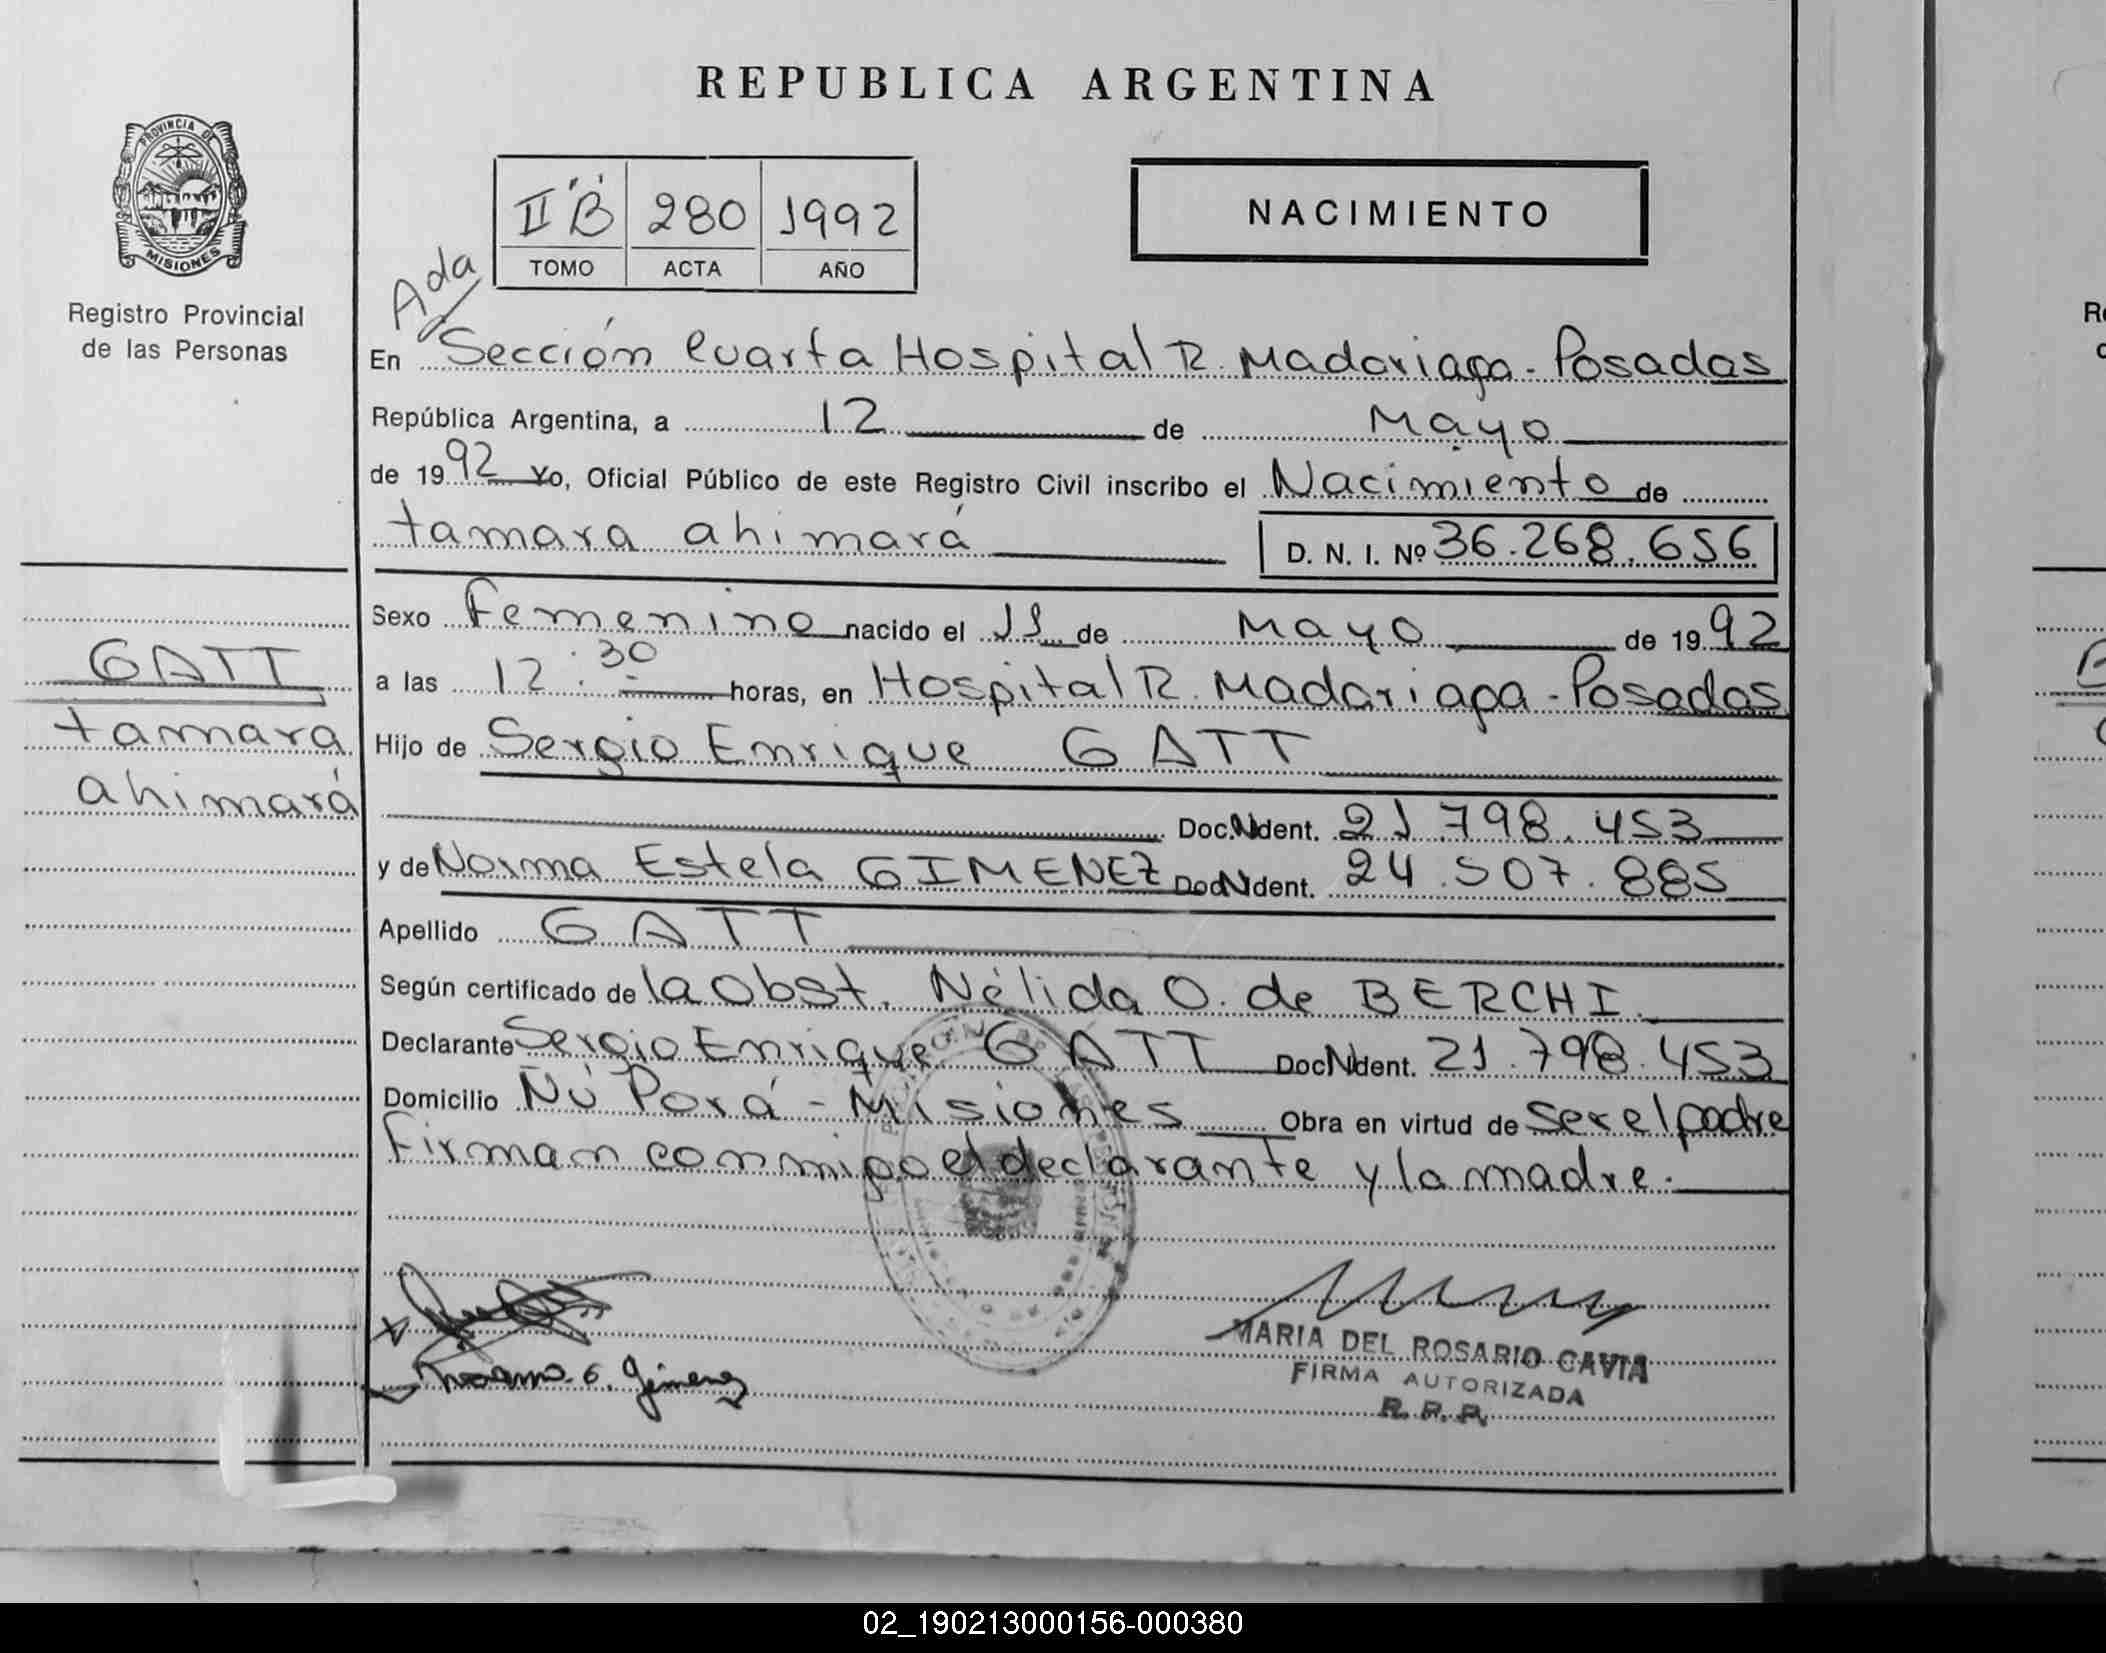 REPUBLICA ARGENTINA
PROVINCIA DE
MISIONES
Registro Provincial
de las Personas
II "B" 280 1992
TOMO ACTA AÑO
NACIMIENTO
Ada
En Sección Cuarta Hospital R. Madariaga - Posadas
República Argentina, a 12 de Mayo
de 1992 Yo, Oficial Público de este Registro Civil inscribo el Nacimiento de
tamara ahimará D. N. I. Nº 36.268.656
Sexo Femenino nacido el 11 de Mayo de 1992
a las 12:30 horas, en Hospital R. Madariaga - Posadas
Hijo de Sergio Enrique GATT
Doc. Ident. 21.798.453
y de Norma Estela GIMENEZ Doc. Ident. 24.507.885
Apellido GATT
Según certificado de la Obst. Nélida O. de BERCHI
Declarante Sergio Enrique GATT Doc Ident. 21.798.453
Domicilio Ñu Porá - Misiones Obra en virtud de ser el padre
Firman conmigo el declarante y la madre.
GATT
tamara
ahimará
Gimenez
MARIA DEL ROSARIO CAVIA
FIRMA AUTORIZADA
R. P. P.
02_190213000156-000380